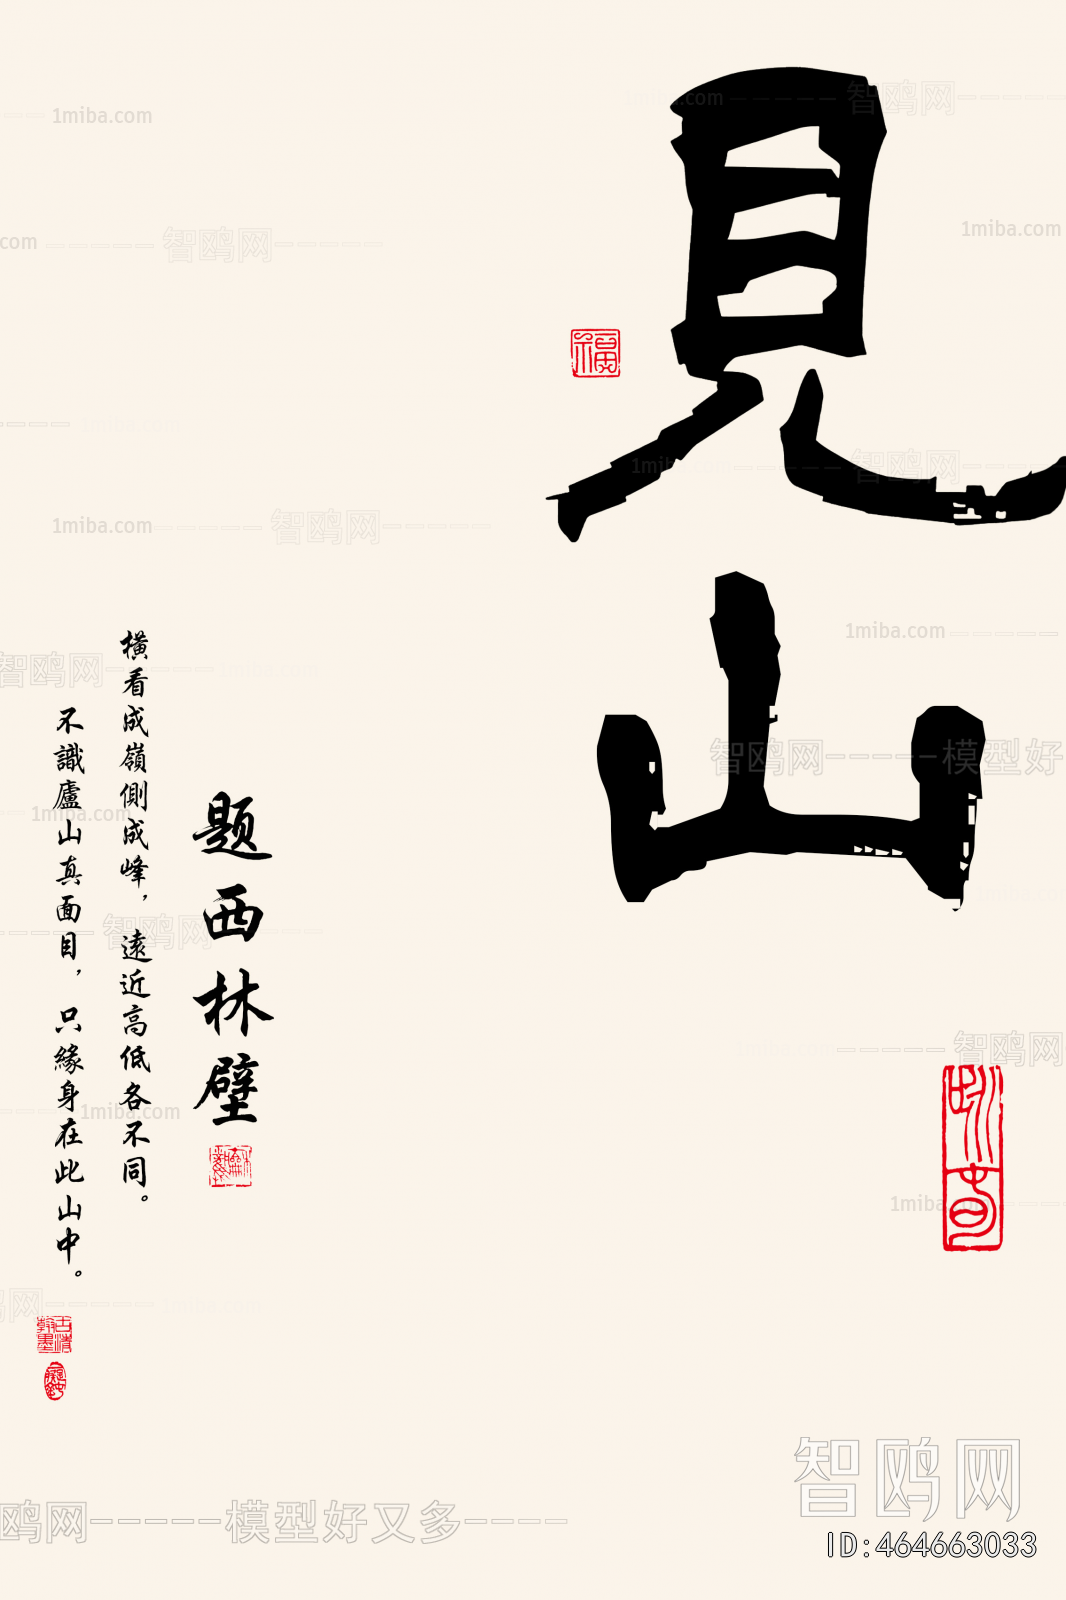 見山
福
题西林壁
橫看成嶺側成峰，遠近高低各不同。
不識廬山真面目，只緣身在此山中。
智鸥网
ID:464663033
1miba.com
智鸥网-----模型好又多----